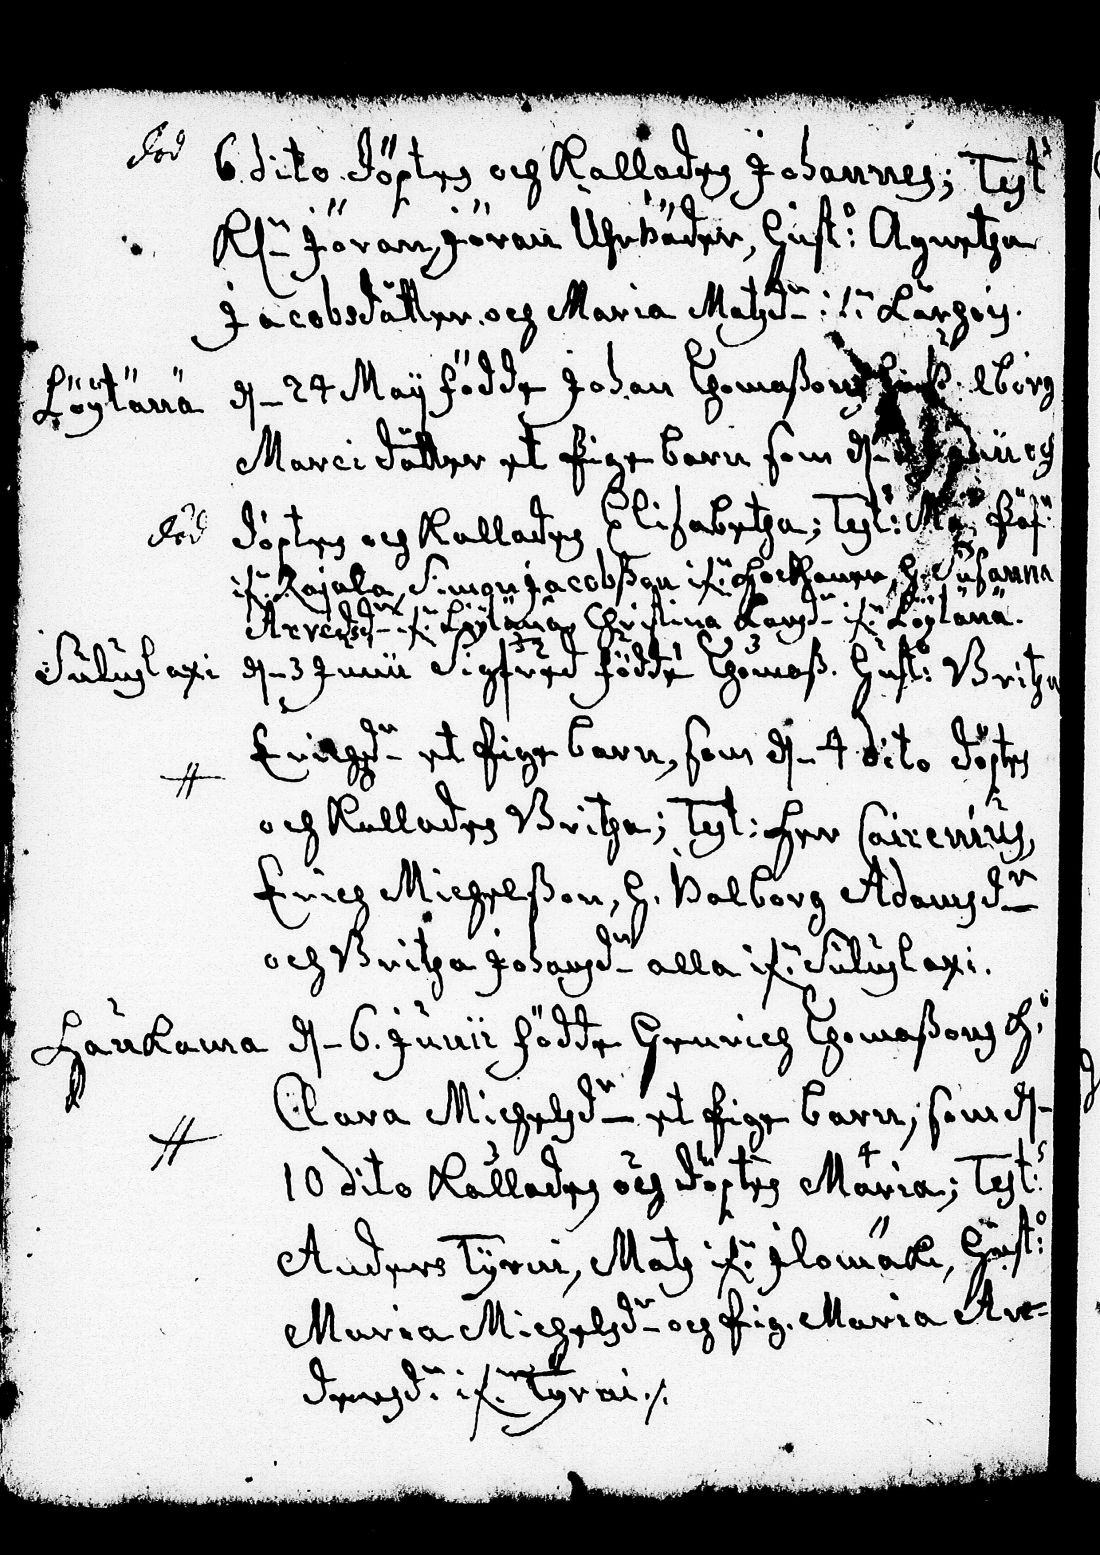 död 6 dito döptes och Kallades Johannes; Test
Kl: Jöran, Jöran Uhrhäder, Hust: Agnetha
Jacobsdätter och Maria Matzd:
Löytänä d. 24 Maÿ födde Johan Thomaßons lborg
Marci dåtter et Pige barn som d.
död döptes och Kallades Elisabetha; Test:
if: Rajala, Simon Jacobßon if: H. Susanna
if: Löytänä, Christina if: Löytänä.
Suluslaxi d. 3 Junii Sigfred födde Thomaß. Hust: Britha
Erichzd: et Pige barn, som d. 4 dito döptes
och Kallades Britha; Test: Herr Cairenius,
Erich Michelßon, H. Valborg Adamsd:
och Britha Johansd: alla if: Suluslaxi.
Haukama d. 6. Junii födde Henrich Thomaßons H:
Clara Michelsd: et Pige barn, som d.
10 dito Kallades och döptes Maria; Test:
Anders Tÿrni, Matz if: Ilomäki, Hust:
Maria Michelsd: och Pig. Maria An-
dersd: if: Tÿrni./.